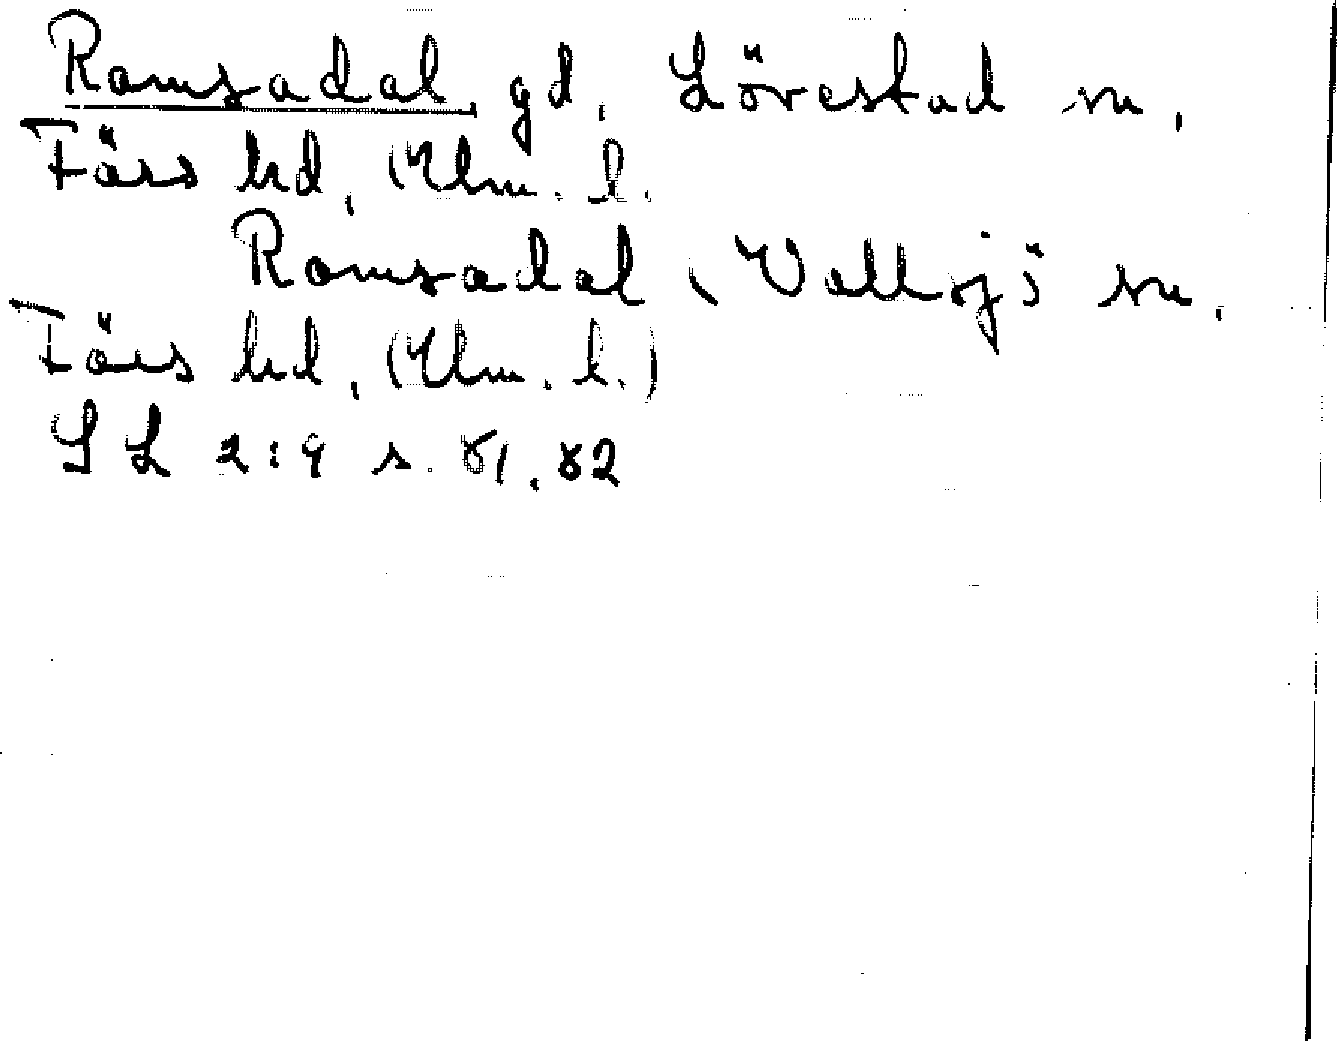 Ramsadal, gd, Lövestad sn,
Färs hd, (Mlm. l.
Ramsadal, Vollsjö sn,
Färs hd, (Mlm. l.)
SL 2:4 s. 81, 82